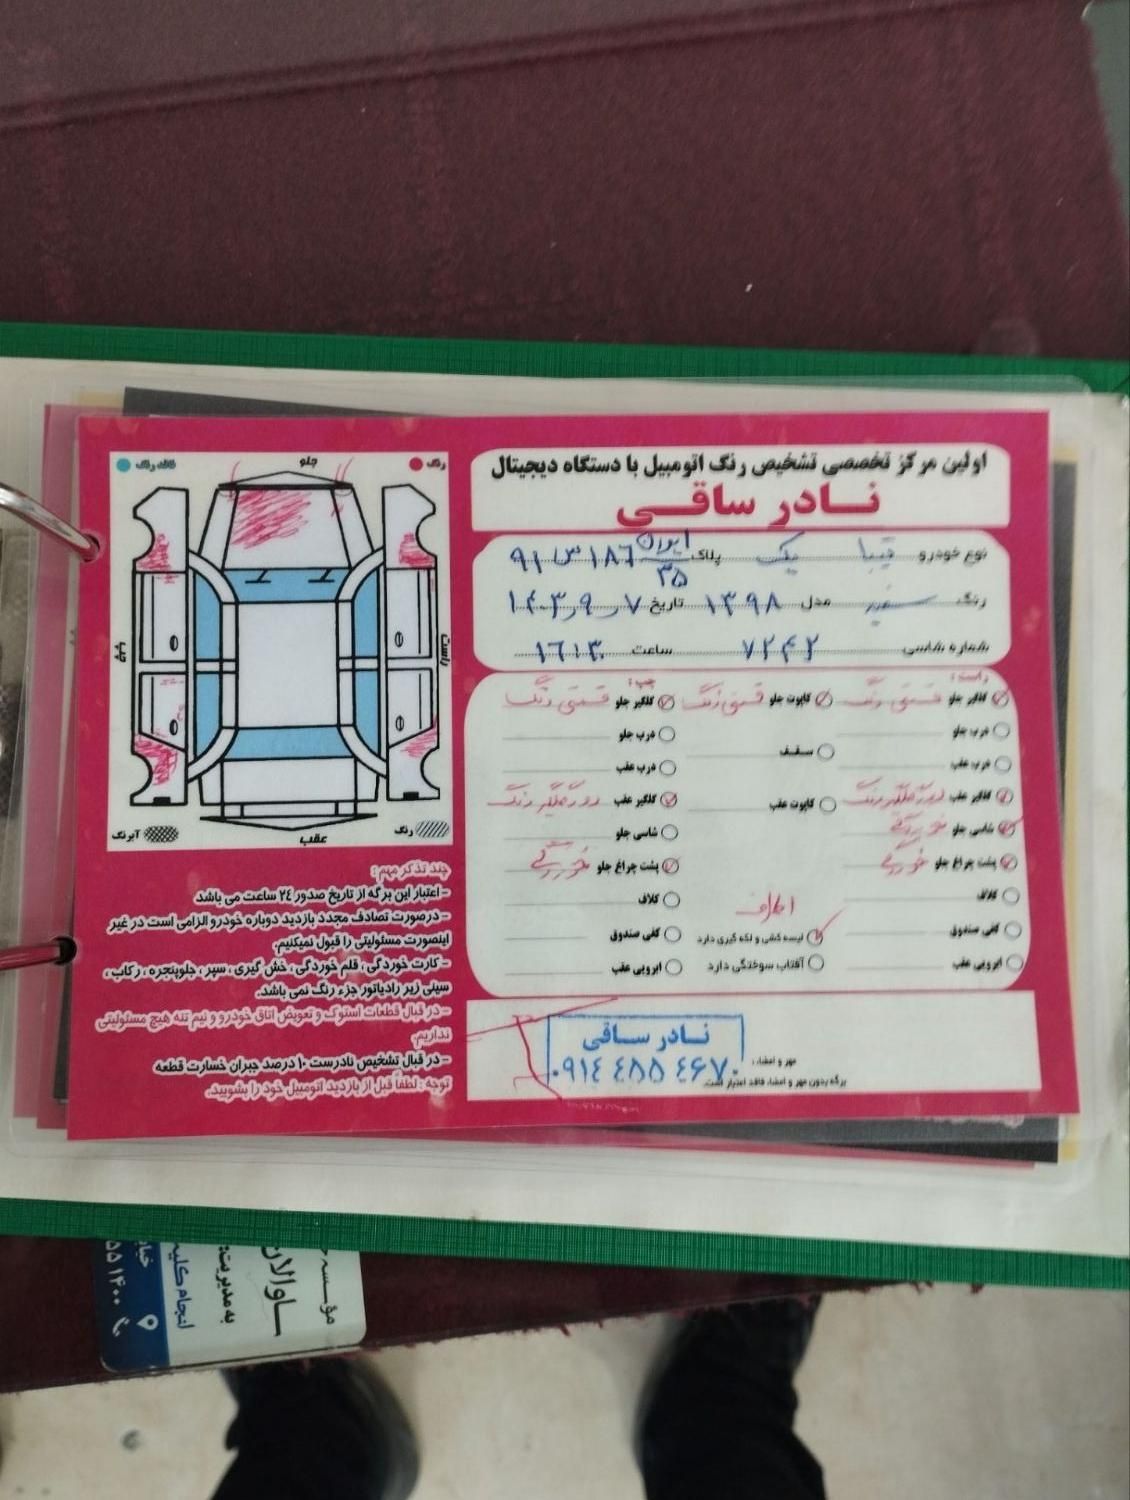 اولین مرکز تخصصی تشخیص رنگ اتومبیل با دستگاه دیجیتال
نادر ساقی
نوع خودرو تیبا یک پلاک ایران ۳۵ ۱۸۶ س ۹۱
رنگ سفید مدل ۱۳۹۸ تاریخ ۱۴۰۳٫۹٫۷
شماره شاسی ۷۲۴۲ ساعت ۱۶:۳۰
راست: چپ:
گلگیر جلو قسمتی رنگ کاپوت جلو قسمتی رنگ گلگیر جلو قسمتی رنگ
درب جلو سقف درب جلو
درب عقب درب عقب
گلگیر عقب دور گلگیر رنگ کاپوت عقب گلگیر عقب دور گلگیر رنگ
شاسی جلو خوردگی شاسی جلو
پشت چراغ جلو خوردگی پشت چراغ جلو خوردگی
کلاف اطراف کلاف
کفی صندوق لیسه کشی و لکه گیری دارد کفی صندوق
ابرویی عقب آفتاب سوختگی دارد ابرویی عقب
نادر ساقی
۰۹۱٤ ٤۸۵ ٤۶۷۰
مهر و امضاء:
برگه بدون مهر و امضاء فاقد اعتبار است.
رنگ جلو فاقد رنگ
راست چپ
رنگ عقب آبرنگ
چند تذکر مهم:
- اعتبار این برگه از تاریخ صدور ۲٤ ساعت می باشد
- درصورت تصادف مجدد بازدید دوباره خودرو الزامی است در غیر
اینصورت مسئولیتی را قبول نمیکنیم.
- کارت خوردگی، قلم خوردگی، خش گیری، سپر، جلوپنجره، رکاب،
سینی زیر رادیاتور جزء رنگ نمی باشد.
- در قبال قطعات استوک و تعویض اتاق خودرو و نیم تنه هیچ مسئولیتی
نداریم.
- در قبال تشخیص نادرست ۱۰ درصد جبران خسارت قطعه
توجه: لطفاً قبل از بازدید اتومبیل خود را بشویید.
مؤسسه
ساوالان
به مدیریت:
انجام کلیه
خیابان
۵۵۱۴۰۰